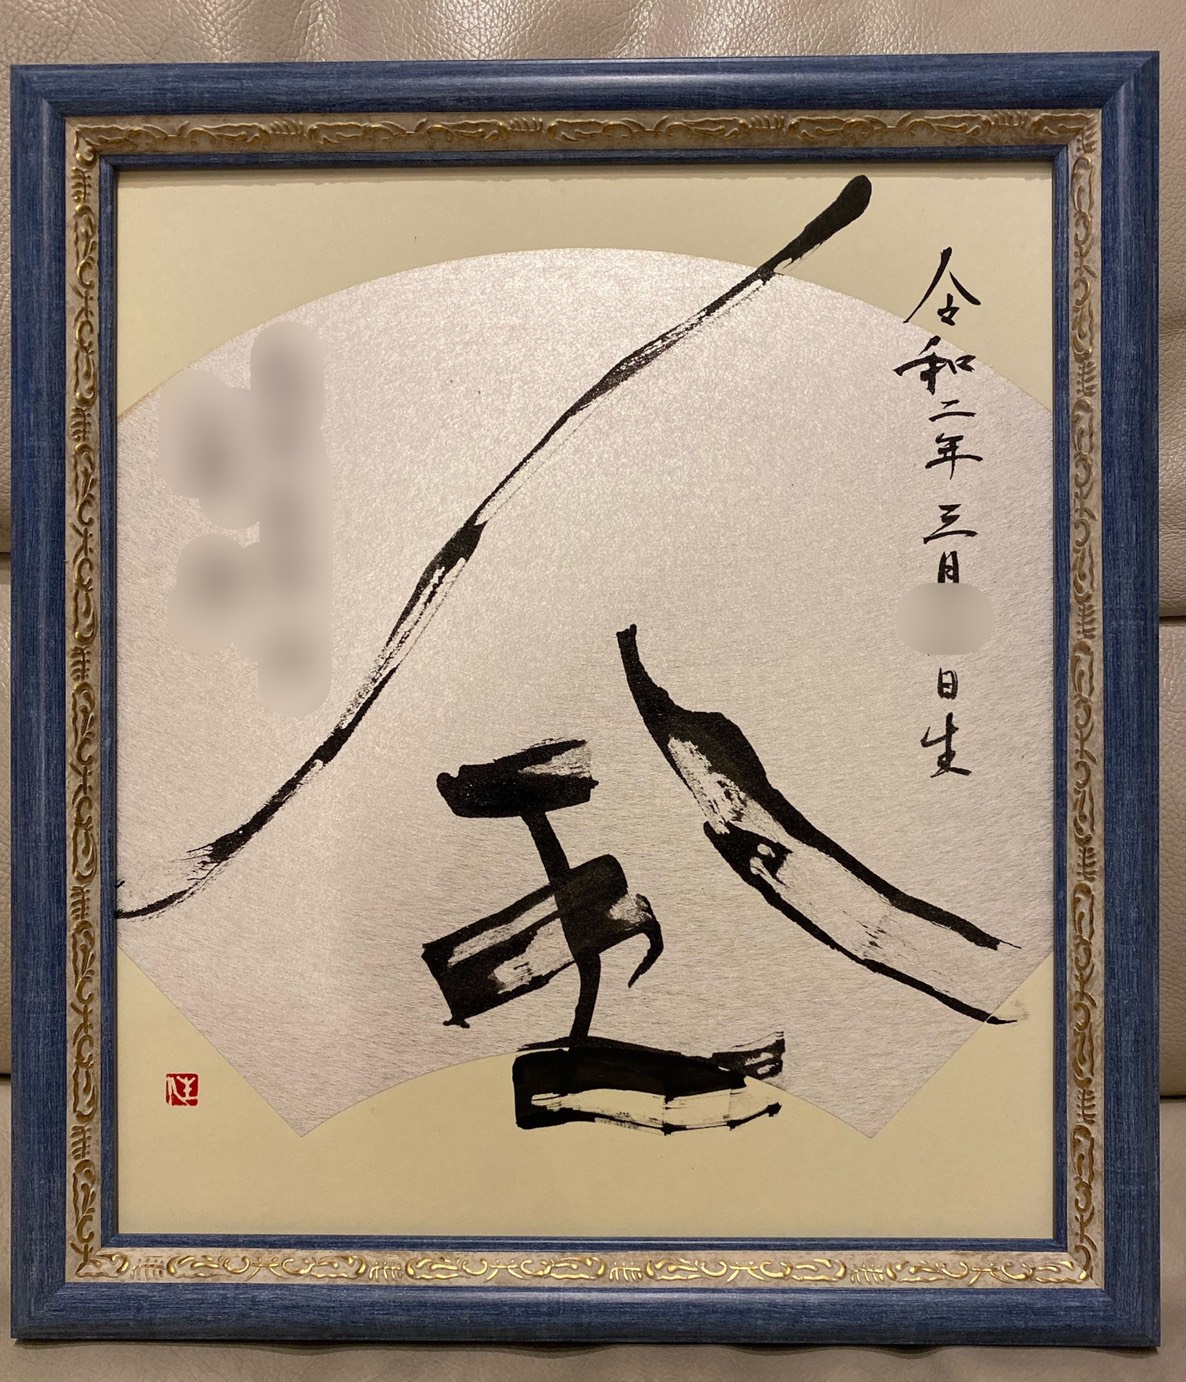 令和二年 三月 日生
全